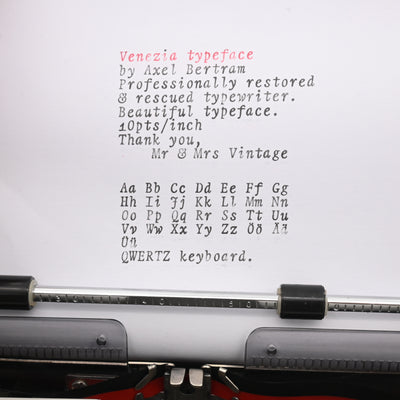 Venezia typeface
by Axel Bertram
Professionally restored
& rescued typewriter.
Beautiful typeface.
10pts/inch
Thank you,
Mr & Mrs Vintage
Aa Bb Cc Dd Ee Ff Gg
Hh Ii Jj Kk Ll Mm Nn
Oo Pp Qq Rr Ss Tt Uu
Vv Ww Xx Yy Zz Öö Ää
Üü
QWERTZ keyboard.